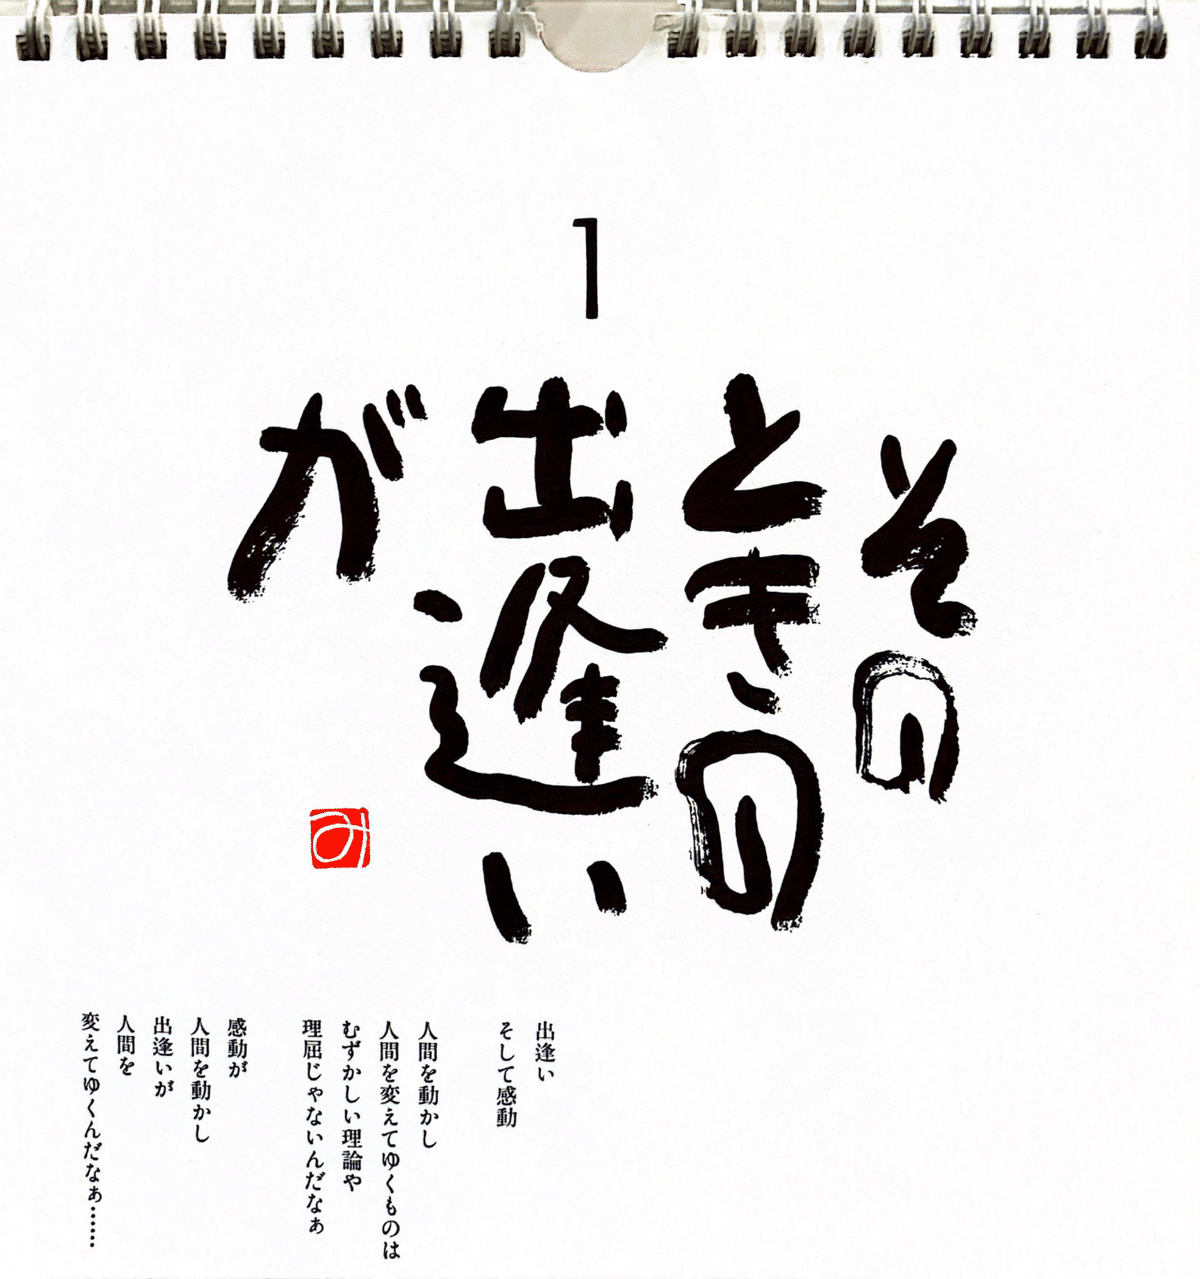 1
その
ときの
出逢い
が
み
出逢い
そして感動
人間を動かし
人間を変えてゆくものは
むずかしい理論や
理屈じゃないんだなぁ
感動が
人間を動かし
出逢いが
人間を
変えてゆくんだなぁ……